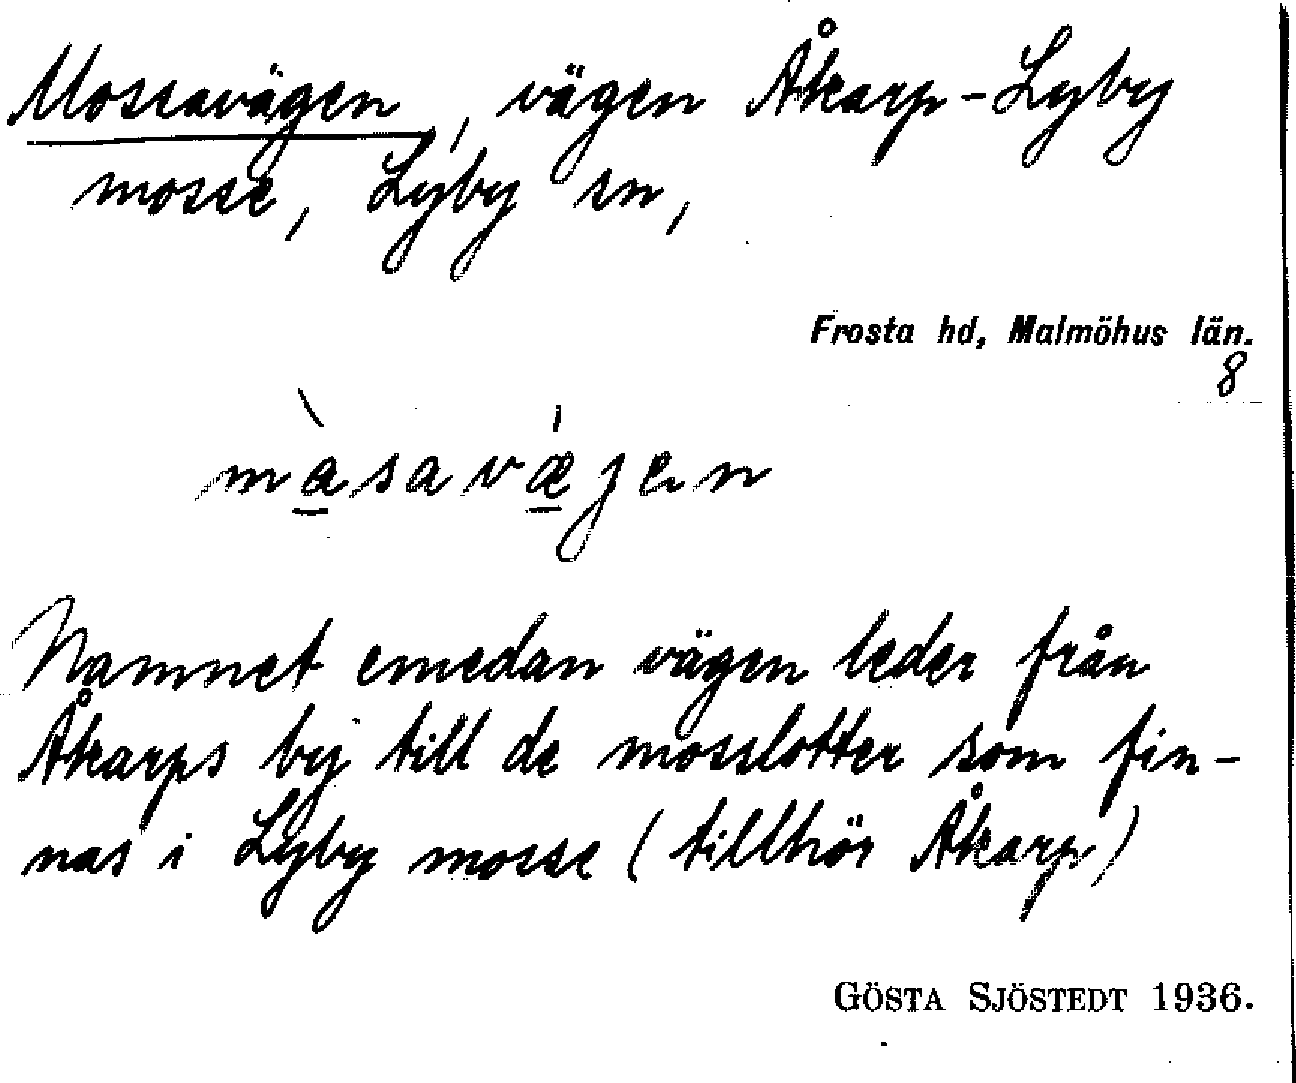 Mossavägen, vägen Åkarp-Lyby
mosse, Lyby sn,
Frosta hd, Malmöhus län.
8
màsavǽjen
Namnet emedan vägen leder från
Åkarps by till de mosslotter som fin-
nas i Lyby mosse (tillhör Åkarp)
GÖSTA SJÖSTEDT 1936.